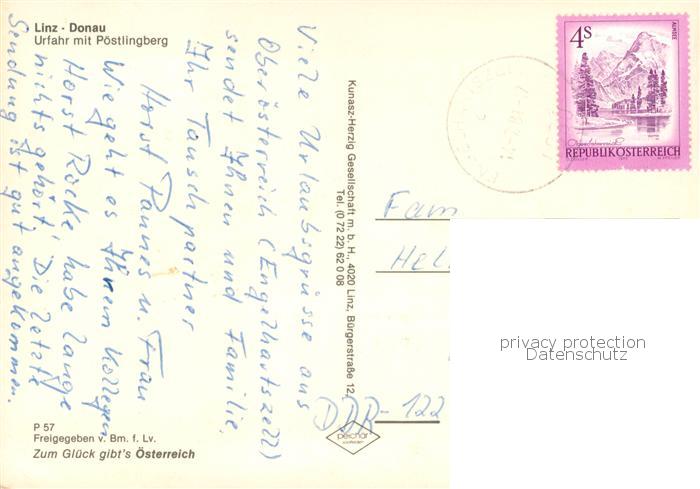 Linz · Donau
Urfahr mit Pöstlingberg
Viele Urlaubsgrüsse aus
Oberösterreich (Engelhartszell)
sendet Ihnen und Familie,
Ihr Tauschpartner
Horst Pannes u. Frau
Wie geht es Ihrem Kollegen
Horst Röcke, habe lange
nichts gehört! Die letzte
Sendung ist gut angekommen.
P 57
Freigegeben v. Bm. f. Lv.
Zum Glück gibt's Österreich
Kunasz-Herzig Gesellschaft m. b. H., 4020 Linz, Bürgerstraße 12,
Tel. (0 72 22) 62 0 08
peichär
4S
ALMSEE
Oberösterreich
REPUBLIK ÖSTERREICH
Fam
Hel
DDR-122
privacy protection
Datenschutz